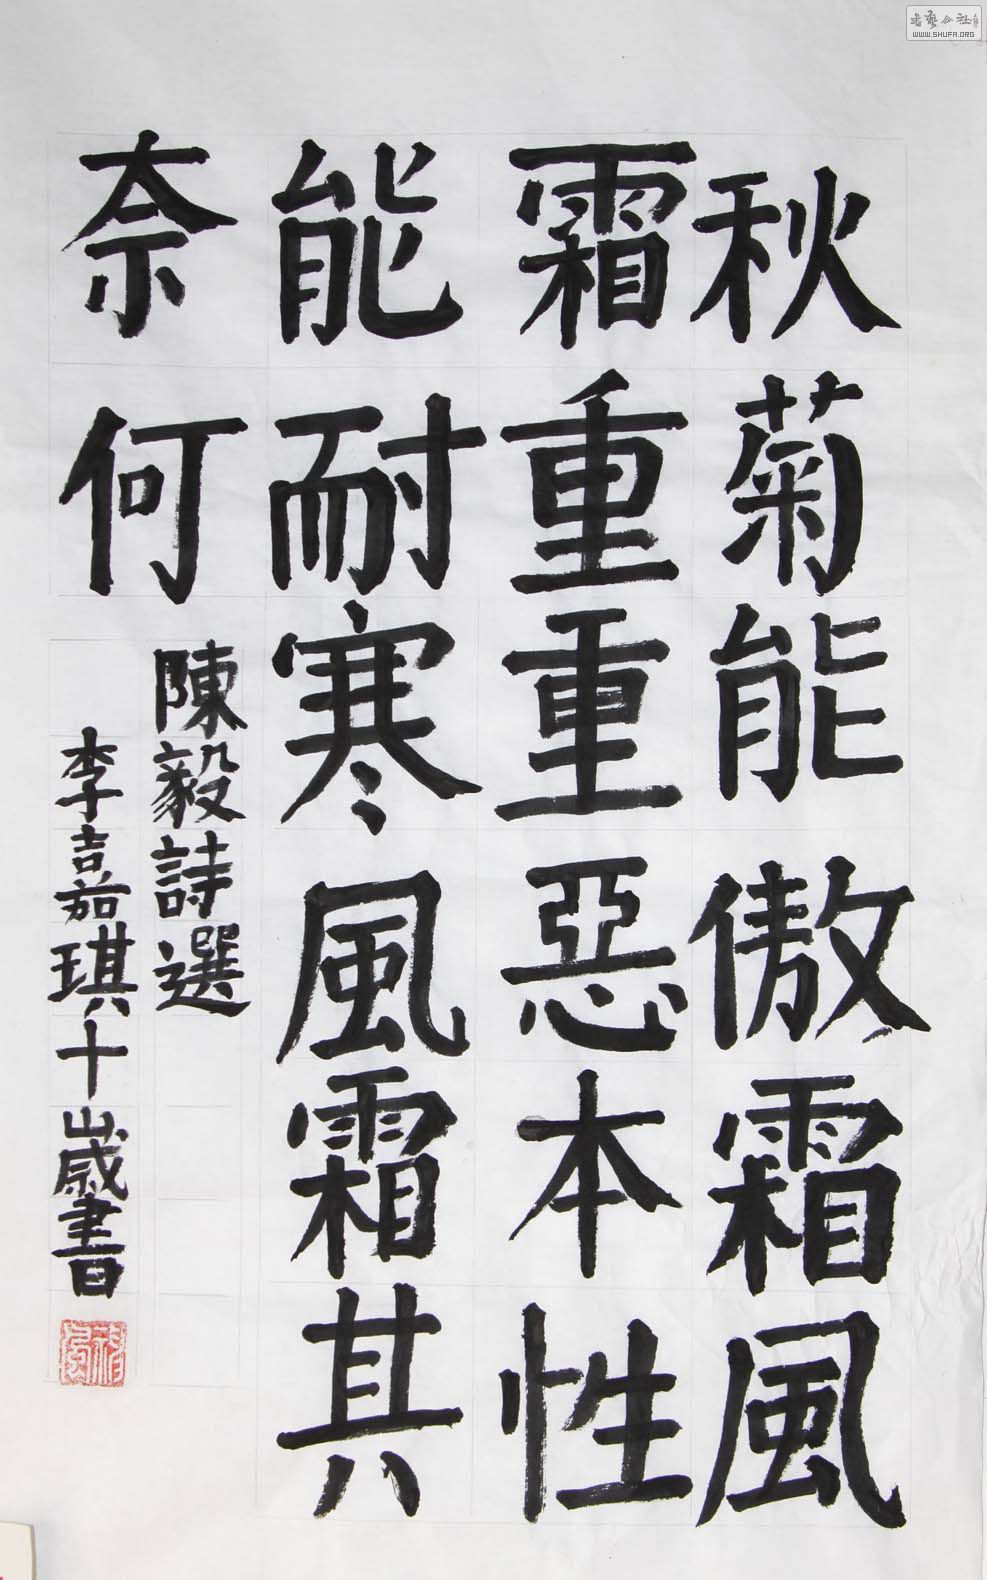 秋菊能傲霜風
霜重重惡本性
能耐寒風霜其
奈何
陳毅詩選
李嘉琪十歲書
WWW.SHUFA.ORG